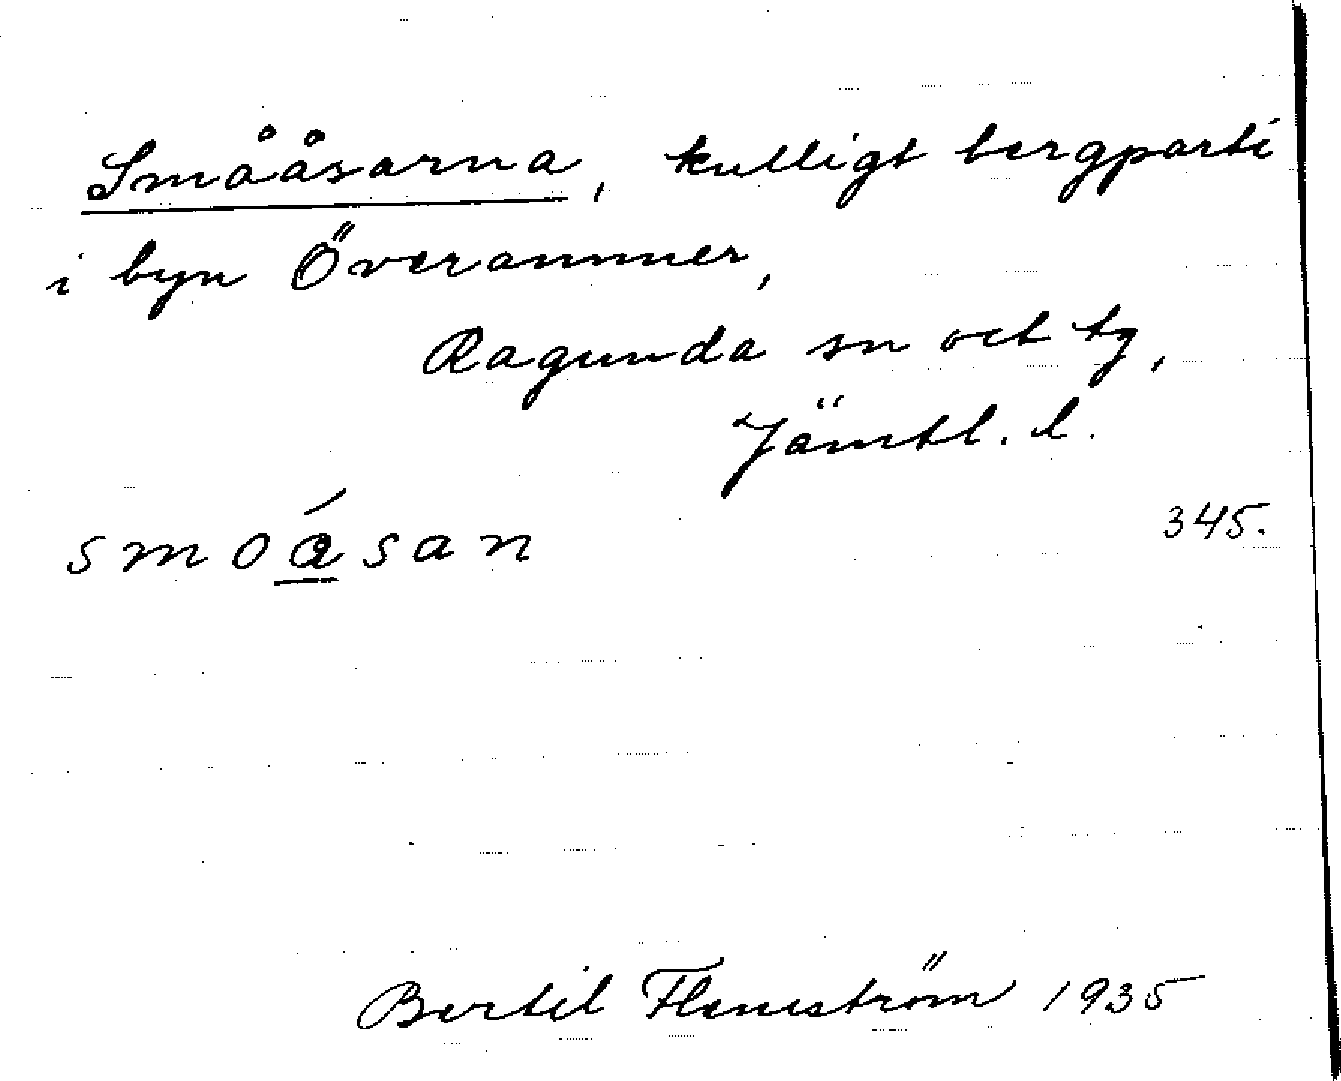 Smååsarna, kulligt bergparti
i byn Överammer,
Ragunda sn och tg,
Jämtl. l.
345.
smoá̲san
Bertil Flemström 1935